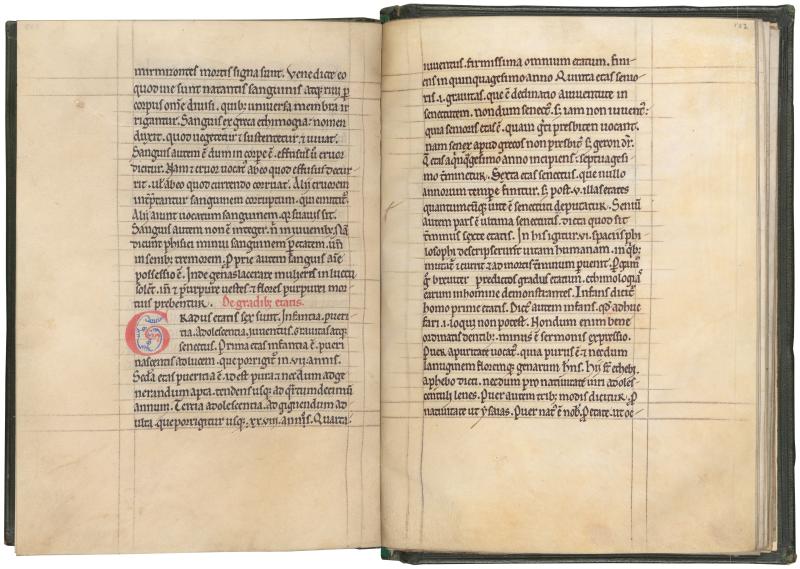 mirmirontes mortis signa sunt. Vene dicte eo
quod uie sunt natantis sanguinis atq; riui p
corpus om̄e diuisi. quib; uniuersa membra ir
rigantur. Sanguis ex greca ethimogia: nomen
duxit. quod uegetetur ⁊ sustentetur, ⁊ uiuat.
Sanguis autem ē dum in corpe ē. effusus ū cruor
dicitur. Nam ⁊ cruor uocat᷒ ab eo quod effusus decur
rit. ul̄ ab eo quod currendo corruat. Alij cruorem
int̄pretantur sanguinem corruptum. qui emittit᷒.
Alij aiunt uocatum sanguinem. q̄ suauis sit.
Sanguis autem non ē integer. n̄ in iuuenib;. Nā
dicunt phisici minui sanguinem p etatem. un̄
in senib; tremorem. Pprie autem sanguis aīe
possessio ē. Inde genas lacerare mulieris in luctu
solēt. un̄ ⁊ purpuree uestes ⁊ flores purpurei mor
tuis prebentur. De gradib; etatis.
GRadus etatis sex sunt. Infantia, pueri
tia, adolescentia, iuuentus, grauitas atq;
senectus. Prima etas infantia ē. pueri
nascentis ad lucem. que porrigit᷒ in .vii. annis.
Sc̄da etas puericia ē. id est pura ⁊ necdum ad ge
nerandum apta. tendens usq; ad q̄rtum decimū
annum. Tertia adolescentia. ad gignendum ad
ulta. que porrigitur usq; xx.viii. annū. Quarta
102
iuuentus. firmissima omnium etatum. fini
ens in quinquagesimo anno. Quinta etas senio
ris .i. grauitas. que ē declinatio a iuuentute in
senectutem. nondum senect᷒. s; iam non iuuent᷒:
quia senioris etas ē. quam greci presbiteri uocant.
nam senex apud grecos non presbit᷒. s; geron dr̄.
Q̄ etas a q̄nq̄gesimo anno incipiens: septuagesi
mo t̄minetur. Sexta etas senectus. que nullo
annorum tempe finitur. s; post .v. illas etates
quantumcūq; uite ē senectuti deputatur. Seniū
autem pars ē ultima senectutis. dicta quod sit
t̄minus sexte etatis. In his igitur .vi. spaciis phi
losophi descripserunt uitam humanam. in q̄b;
mutat᷒ ⁊ currit ⁊ ad mortis t̄minum puenit. Pgam᷒
g̊ breuiter predictos gradus etatum. ethimologias
earum in homine demonstrantes. Infans dicit᷒
homo prime etatis. Dict᷒ autem infans. q̄d adhuc
fari .i. loqui non potest. Nondum enim bene
ordinatis dentib;. minus ē sermonis expressio.
Puer. a puritate uocat᷒. quia purus ē ⁊ necdum
lanuginem floremq; genarum hn̄s. Hij st̄ ephebi.
a phebo dicti. necdum pro natiuitate uiri adoles
centuli lenes. Puer autem trib; modis dicitur. p
natiuitate ut ysaias. Puer nat᷒ ē nob̄. P etate. ut oc